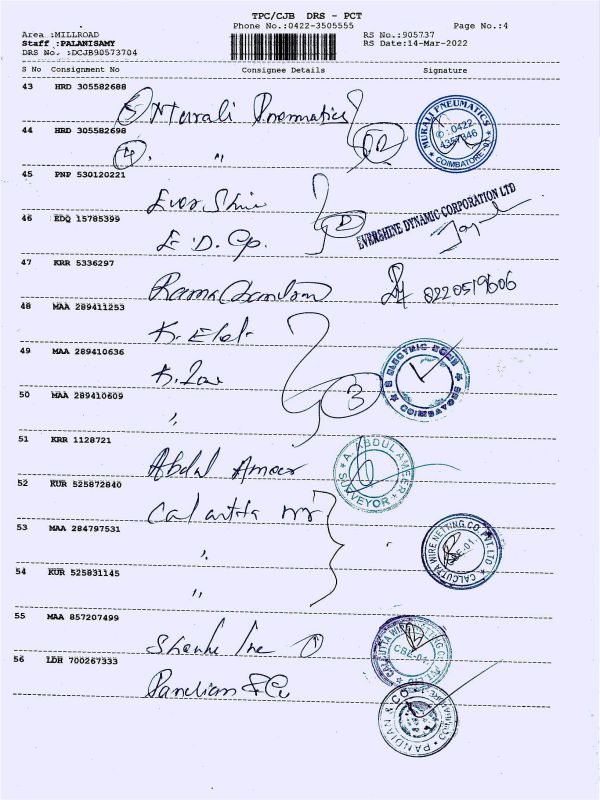 TPC/CJB DRS - PCT
Phone No.:0422-3505555 Page No.:4
Area :MILLROAD
Staff :PALANISAMY
DRS No. :DCJB90573704
RS No.:905737
RS Date:14-Mar-2022
S No Consignment No Consignee Details Signature
43 HRD 305582688
Murali Pneumatics
MURALI PNEUMATICS
COIMBATORE
44 HRD 305582698
"
45 PNP 530120221
Ever Shine
EVERSHINE DYNAMIC CORPORATION LTD
46 EDQ 15785399
E. D. Cp.
47 KRR 5336297
Rama Chandran
48 MAA 289411253
K. Elet
49 MAA 289410636
3
ELECTRIC
50 MAA 289410609
"
51 KRR 1128721
Abdul Ameer
A. ABDUL AMEER
SURVEYOR
52 KUR 525872840
Calcutta Wr
53 MAA 284797531
"
CALCUTTA WIRE NETTING CO. PVT. LTD
CBE-01.
54 KUR 525831145
"
55 MAA 857207499
CALCUTTA WIRE NETTING CO
CBE-01.
56 LDH 700267333
Pandian & Co
PANDIAN & CO